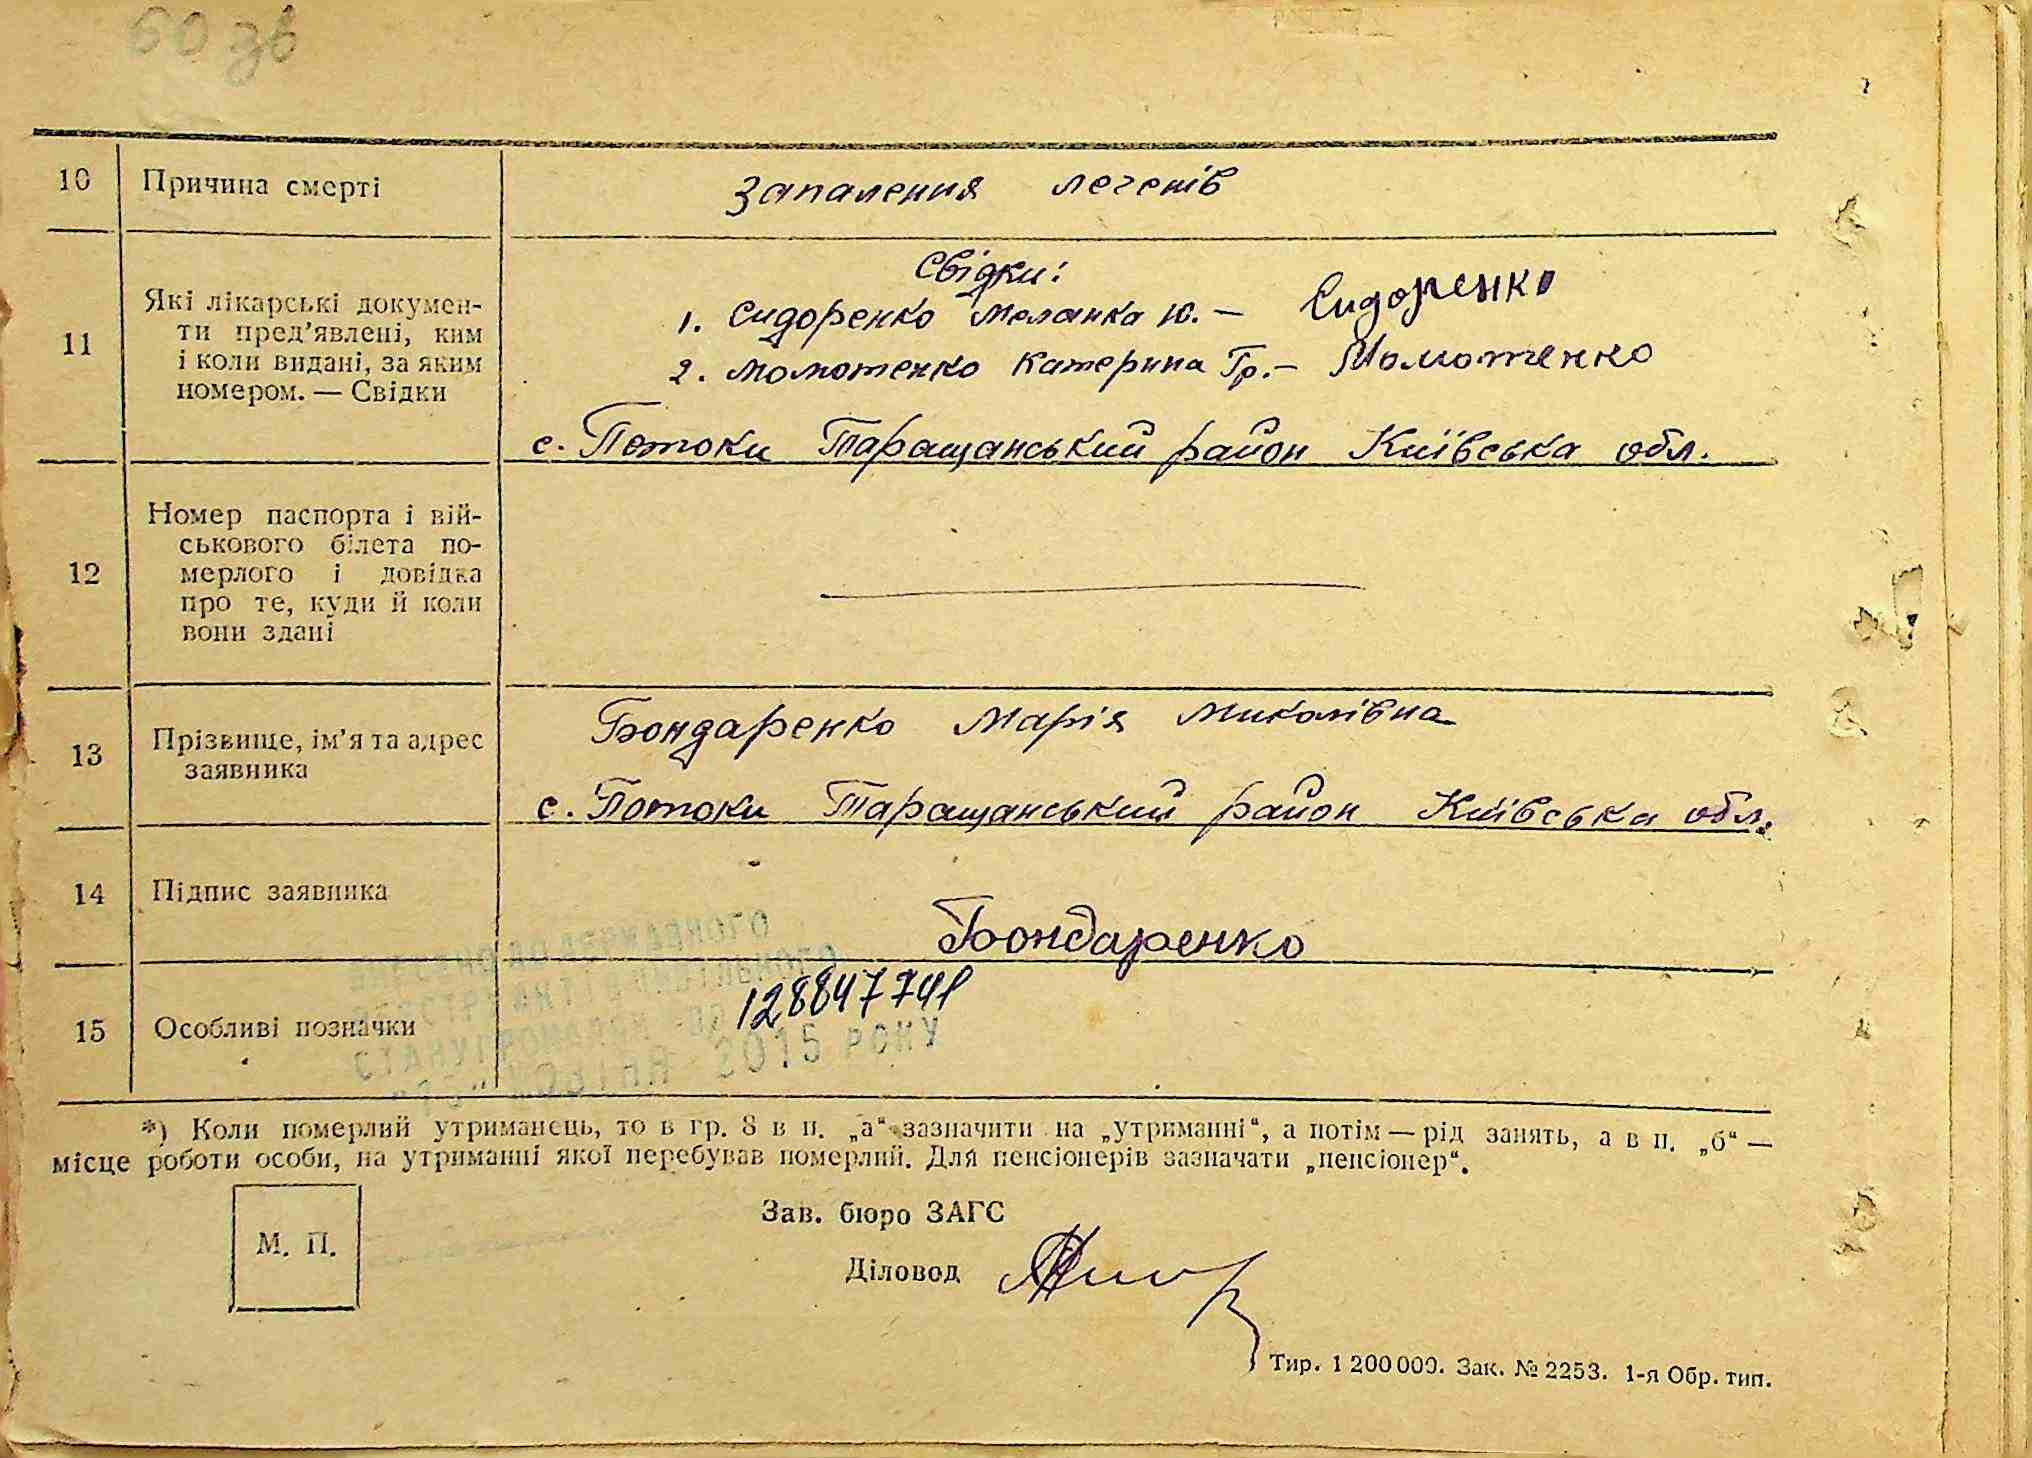 60 зв
10 Причина смерті запалення легенів
11 Які лікарські докумен-
ти пред'явлені, ким
і коли видані, за яким
номером. — Свідки
Свідки:
1. Сидоренко Меланка Ю. — Сидоренко
2. Момотенко Катерина Гр. — Момотенко
с. Потоки Таращанський район Київська обл.
12 Номер паспорта і вій-
ськового білета по-
мерлого і довідка
про те, куди й коли
вони здані
13 Прізвище, ім'я та адрес
заявника
Бондаренко Марія Миколівна
с. Потоки Таращанський район Київська обл.
14 Підпис заявника Бондаренко
15 Особливі позначки
128847741
2015 РОКУ
*) Коли померлий утриманець, то в гр. 8 в п. „а“ зазначити на „утриманні“, а потім — рід занять, а в п. „б“ —
місце роботи особи, на утриманні якої перебував померлий. Для пенсіонерів зазначати „пенсіонер“.
М. П.
Зав. бюро ЗАГС
Діловод
Тир. 1 200 000. Зак. № 2253. 1-я Обр. тип.